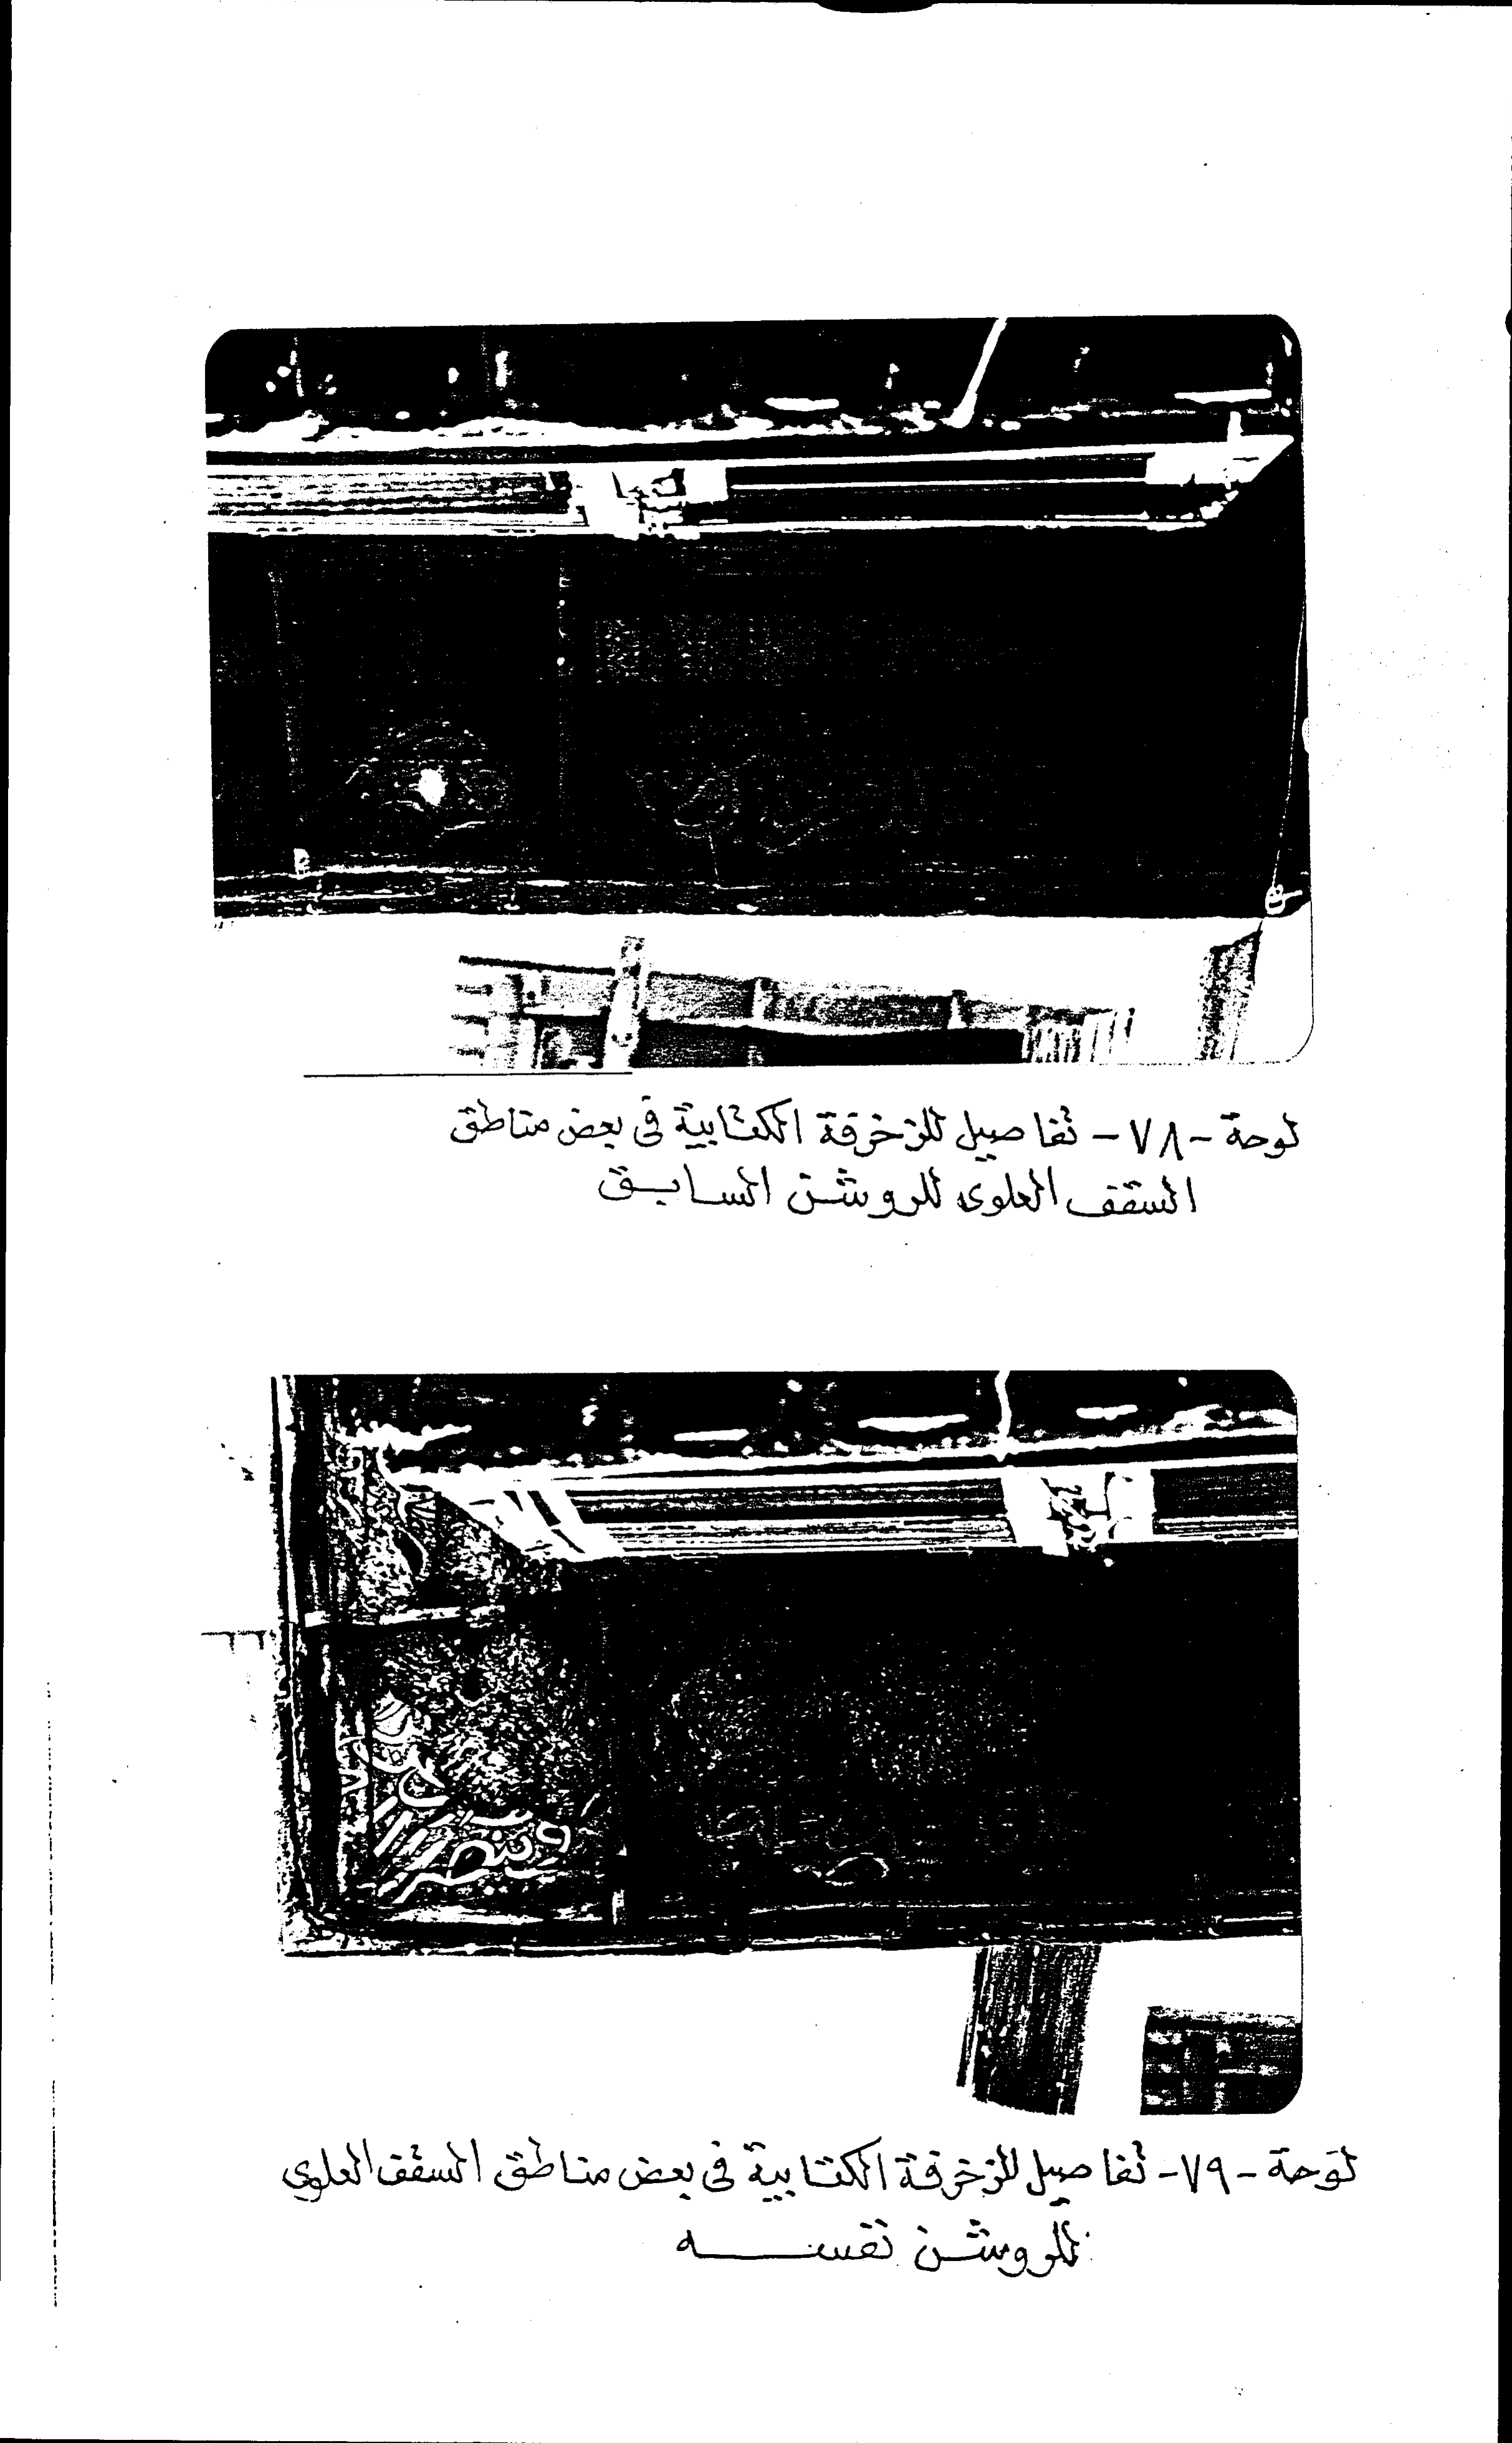 لوحة - ٧٨ - تفاصيل للزخرفة الكتابية فى بعض مناطق
السقف العلوى للروشن السابق
وينصر
لوحة - ٧٩ - تفاصيل للزخرفة الكتابية فى بعض مناطق السقف العلوي
للروشن نفسه